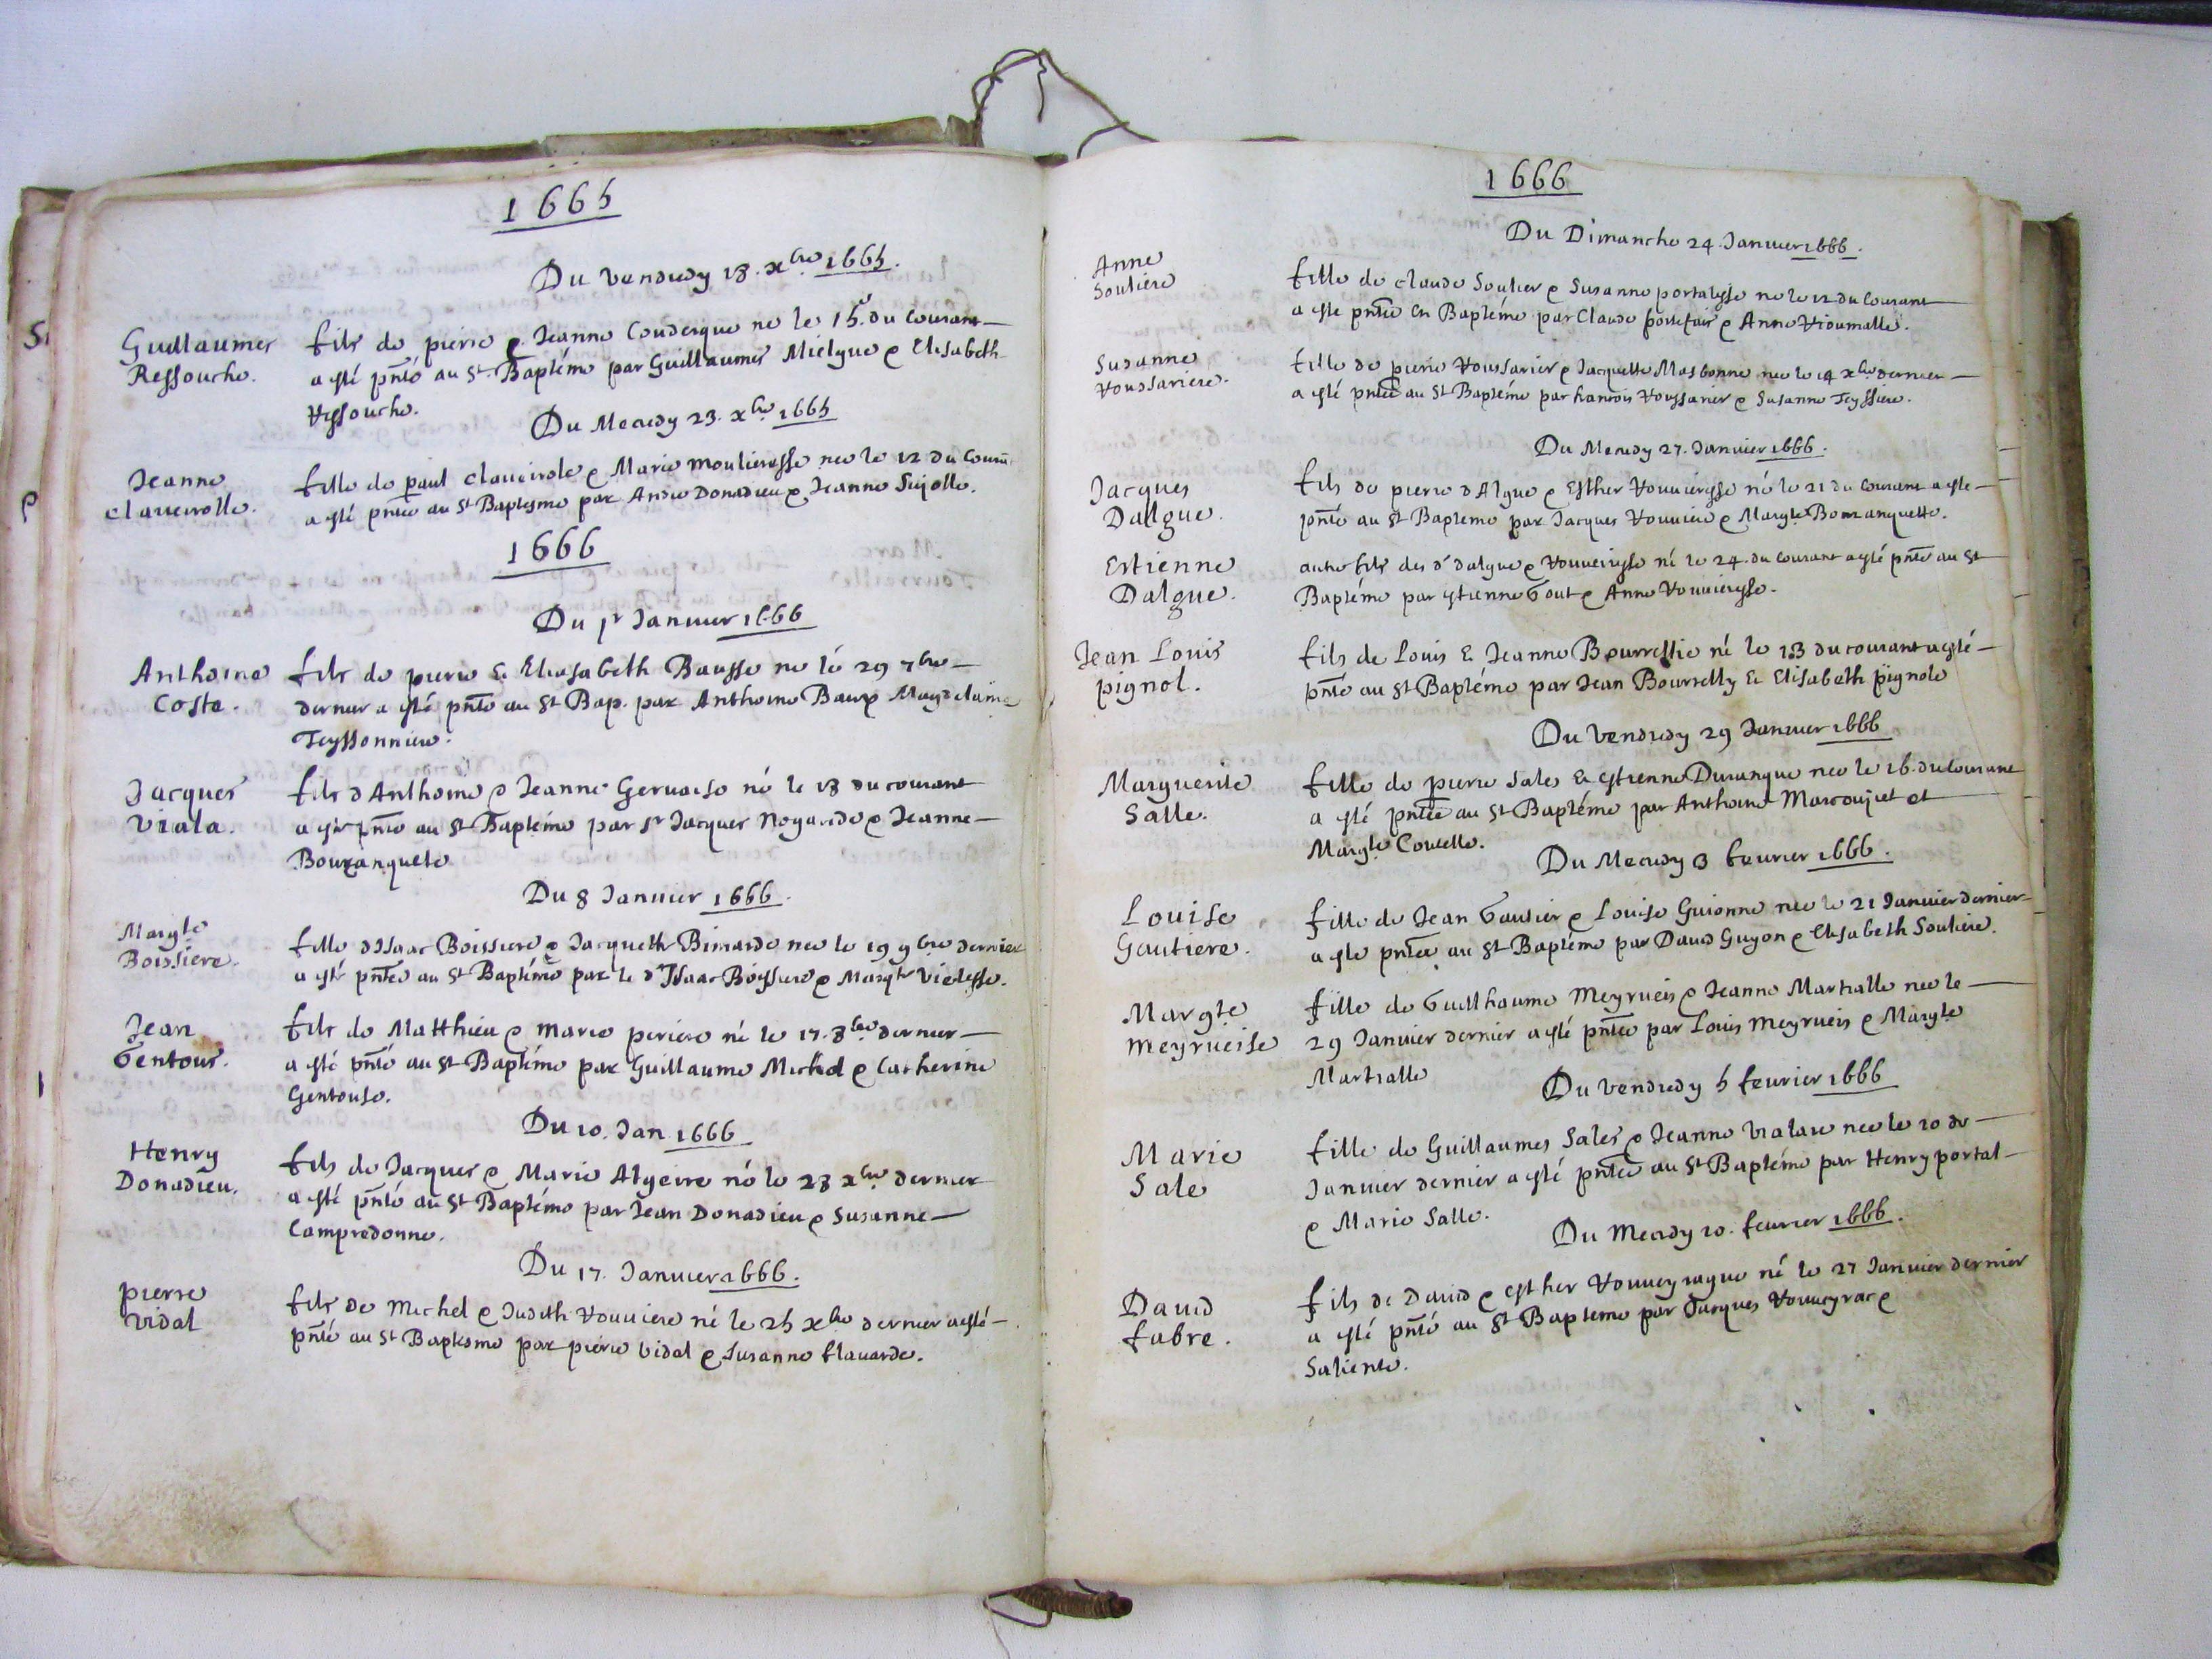 1665
Du Vendredy 18. xbre 1665.
Guillaumes
Ressouche.
fils de pierre e Jeanne Couderque ne le 15. du Courant
a esté pnté au St Baptéme par Guillaumes Mielque e Elisabeth
Ressouche.
Du Mecredy 23. xbre 1665
Jeanne
claveirolle.
fille de paul claveirole e Marie moulieresse nee le 12 du Courant
a esté pntée au St Baptesme par Andre Donadieu e Jeanne
1666
Du 1r Janvier 1666
Anthoine
Coste.
fils de pierre & Eliasabeth Bausse ne le 29 7bre
dernier a esté pnté au St Bap. par Anthoine Baux e Magdelaine
Teyssonniere.
Jacques
Viala.
fils d'Anthoine e Jeanne Gervaise né le 18 du courant
a esté pnté au St Baptéme par sr Jacques Nogarede e Jeanne
Bouranquete
Du 8 Janvier 1666.
Margte
Boissiere.
fille d'Isaac Boissiere e Jacquette Bimarde nee le 19 9bre dernier
a esté pntée au St Baptéme par le d' Isaac Boyssiere e Margte
Jean
Gentous.
fils de Matthieu e marie periere né le 17. 8bre dernier
a esté pnté au St Baptéme par Guillaume Michel e Catherine
Gentouse.
Du 10. Jan 1666
Henry
Donadieu.
fils de Jacques e Marie Algeire né le 28 xbre dernier
a esté pnté au St Baptéme par Jean Donadieu e Susanne
Campredonne.
Du 17. Janvier 1666.
pierre
vidal
fils de michel e Judith Rouviere né le 25 xbre dernier a esté
pnté au St Baptesme par pierre vidal e Susanne flavarde.
1666
Du Dimanche 24. Janvier 1666.
Anne
Souliere
fille de claude Soulier e Susanne portalesse nee le 12 du Courant
a este pntée en Baptéme par Claude portefaix e Anne Rioumalle.
Susanne
Roussariere.
fille de pierre Roussarier e Jacquette Masbonne nee le 14 xbre dernier
a esté pntée au St Baptéme par francois Roussarier e Susanne Teyssiere.
Du Mecredy 27. Janvier 1666.
Jacques
Dallgue.
fils de pierre d'Algue e Esther Rouvieresse né le 21 du Courant a este
pnté au St Bapteme par Jacques Rouviere e Margte Bouranquette.
Estienne
Dalgue.
autre fils des d' dalgue e Rouveiresse né le 24. du courant a esté pnté au St
Baptéme par estienne Gout e Anne Rouvieresse.
Jean Louis
pignol.
fils de Louis & Jeanne Bourrellie né le 13 du courant a esté
pnté au St Baptéme par Jean Bourrelly & Elisabeth pignole
Du Vendredy 29 Janvier 1666
Marguerite
Salle.
fille de pierre Sales & estienne Duranque nee le 16. du Courant
a esté pntée au St Baptéme par Anthoine et
Margte
Du Mecredy 3 fevrier 1666.
Louise
Gautiere.
fille de Jean Gautier e Louise Guionne nee le 21 Janvier dernier
a este pntée au St Baptéme par David Guyon e Elisabeth Souliere.
Margte
meyrueise
fille de Guillhaume Meyrueis e Jeanne Martialle nee le
29 Janvier dernier a esté pntée par Louis meyrueis e Margte
Martialle
Du Vendredy 5 fevrier 1666
Marie
Sale
fille de Guillaumes Sales e Jeanne Vialase nee le 20 de
Janvier dernier a esté pntée au St Baptéme par Henry portal
e Marie Salle.
Du Mecredy 10. fevrier 1666.
David
fabre.
fils de David e esther Rouveyrague né le 27 Janvier dernier
a esté pnté au St Bapteme par Jacques Rouveyrac e
Saliente.